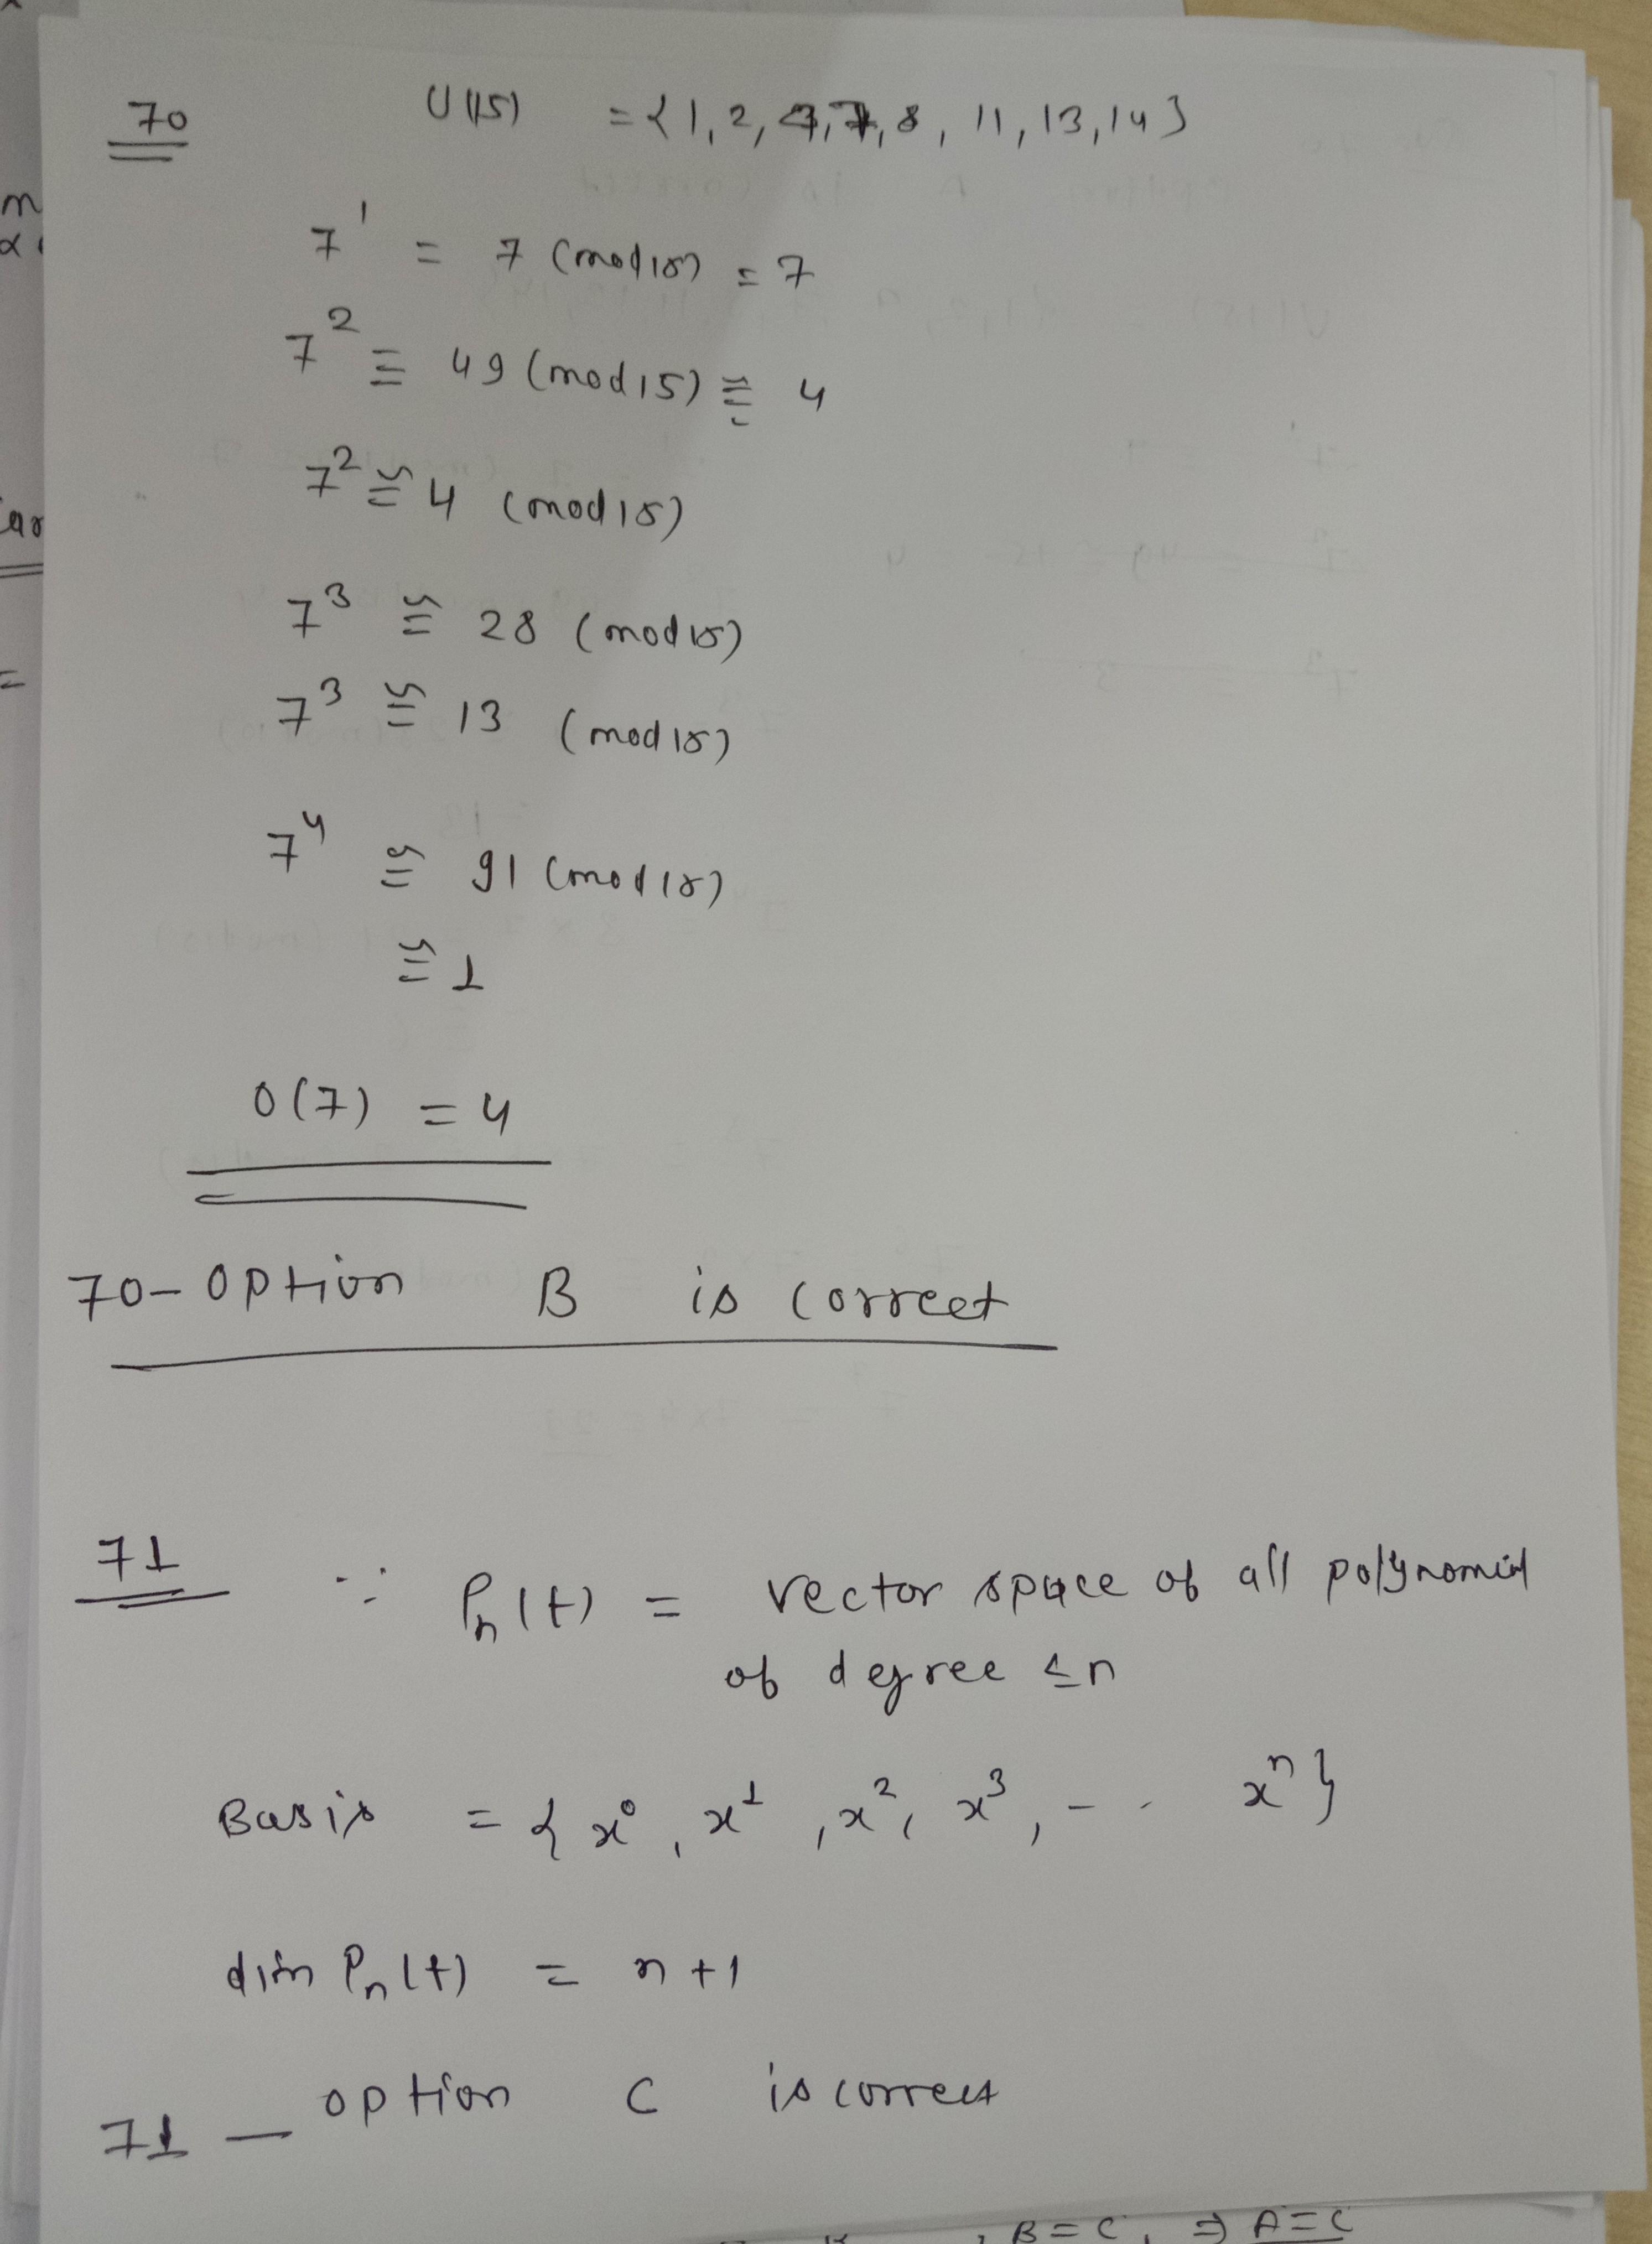 70 U(15) = {1, 2, 4, 7, 8, 11, 13, 14}
7¹ = 7 (mod 15) = 7
7² ≡ 49 (mod 15) ≅ 4
7² ≅ 4 (mod 15)
7³ ≅ 28 (mod 15)
7³ ≅ 13 (mod 15)
7⁴ ≅ 91 (mod 15)
≅ 1
O(7) = 4
70- option B is correct
71 ∵ Pₙ(t) = vector space of all polynomial
of degree ≤n
Basis = { x⁰, x¹, x², x³, - - xⁿ}
dim Pₙ(t) = n+1
71 — option C is correct
, B = C, ⇒ A = C